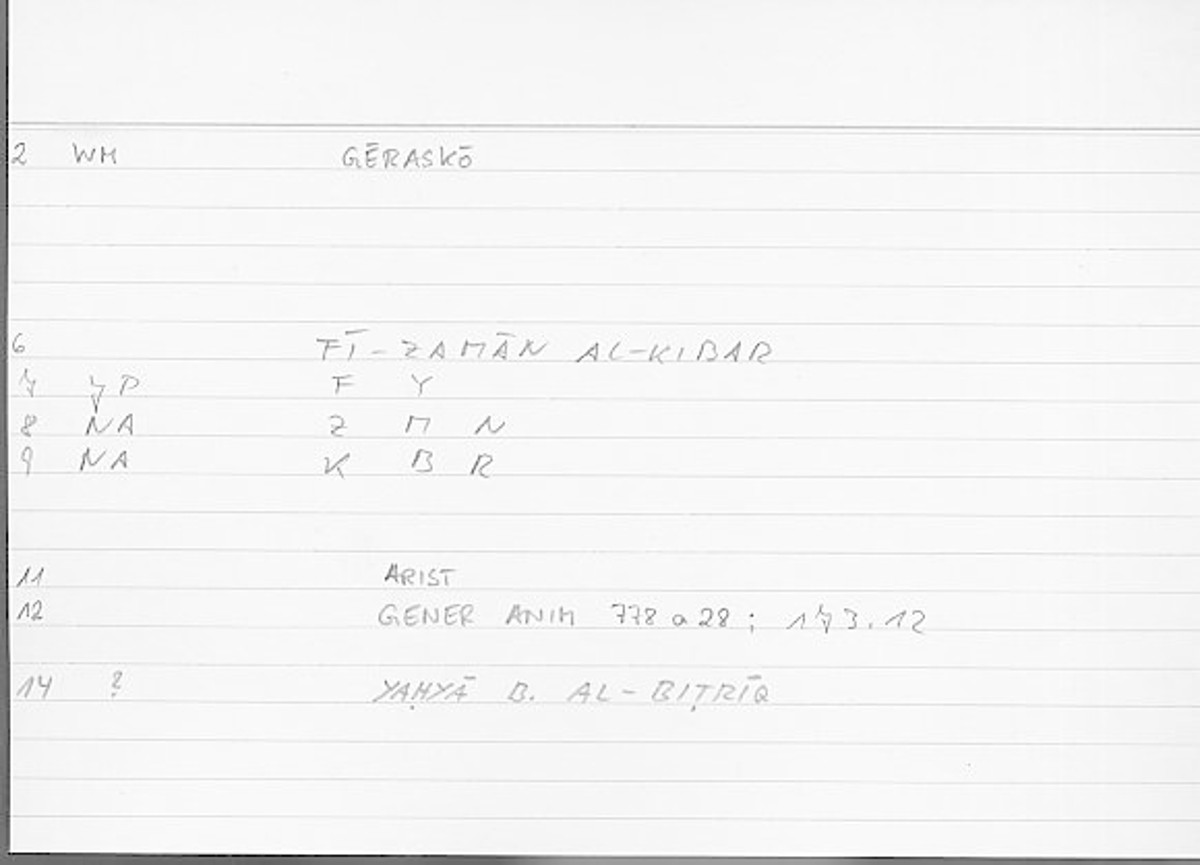 2 WM GĒRASKŌ
6 FĪ-ZAMĀN AL-KIBAR
7 P F Y
8 NA Z M N
9 NA K B R
11 ARIST
12 GENER ANIM 778 a 28 ; 173.12
14 ? YAḤYĀ B. AL-BIṬRĪQ